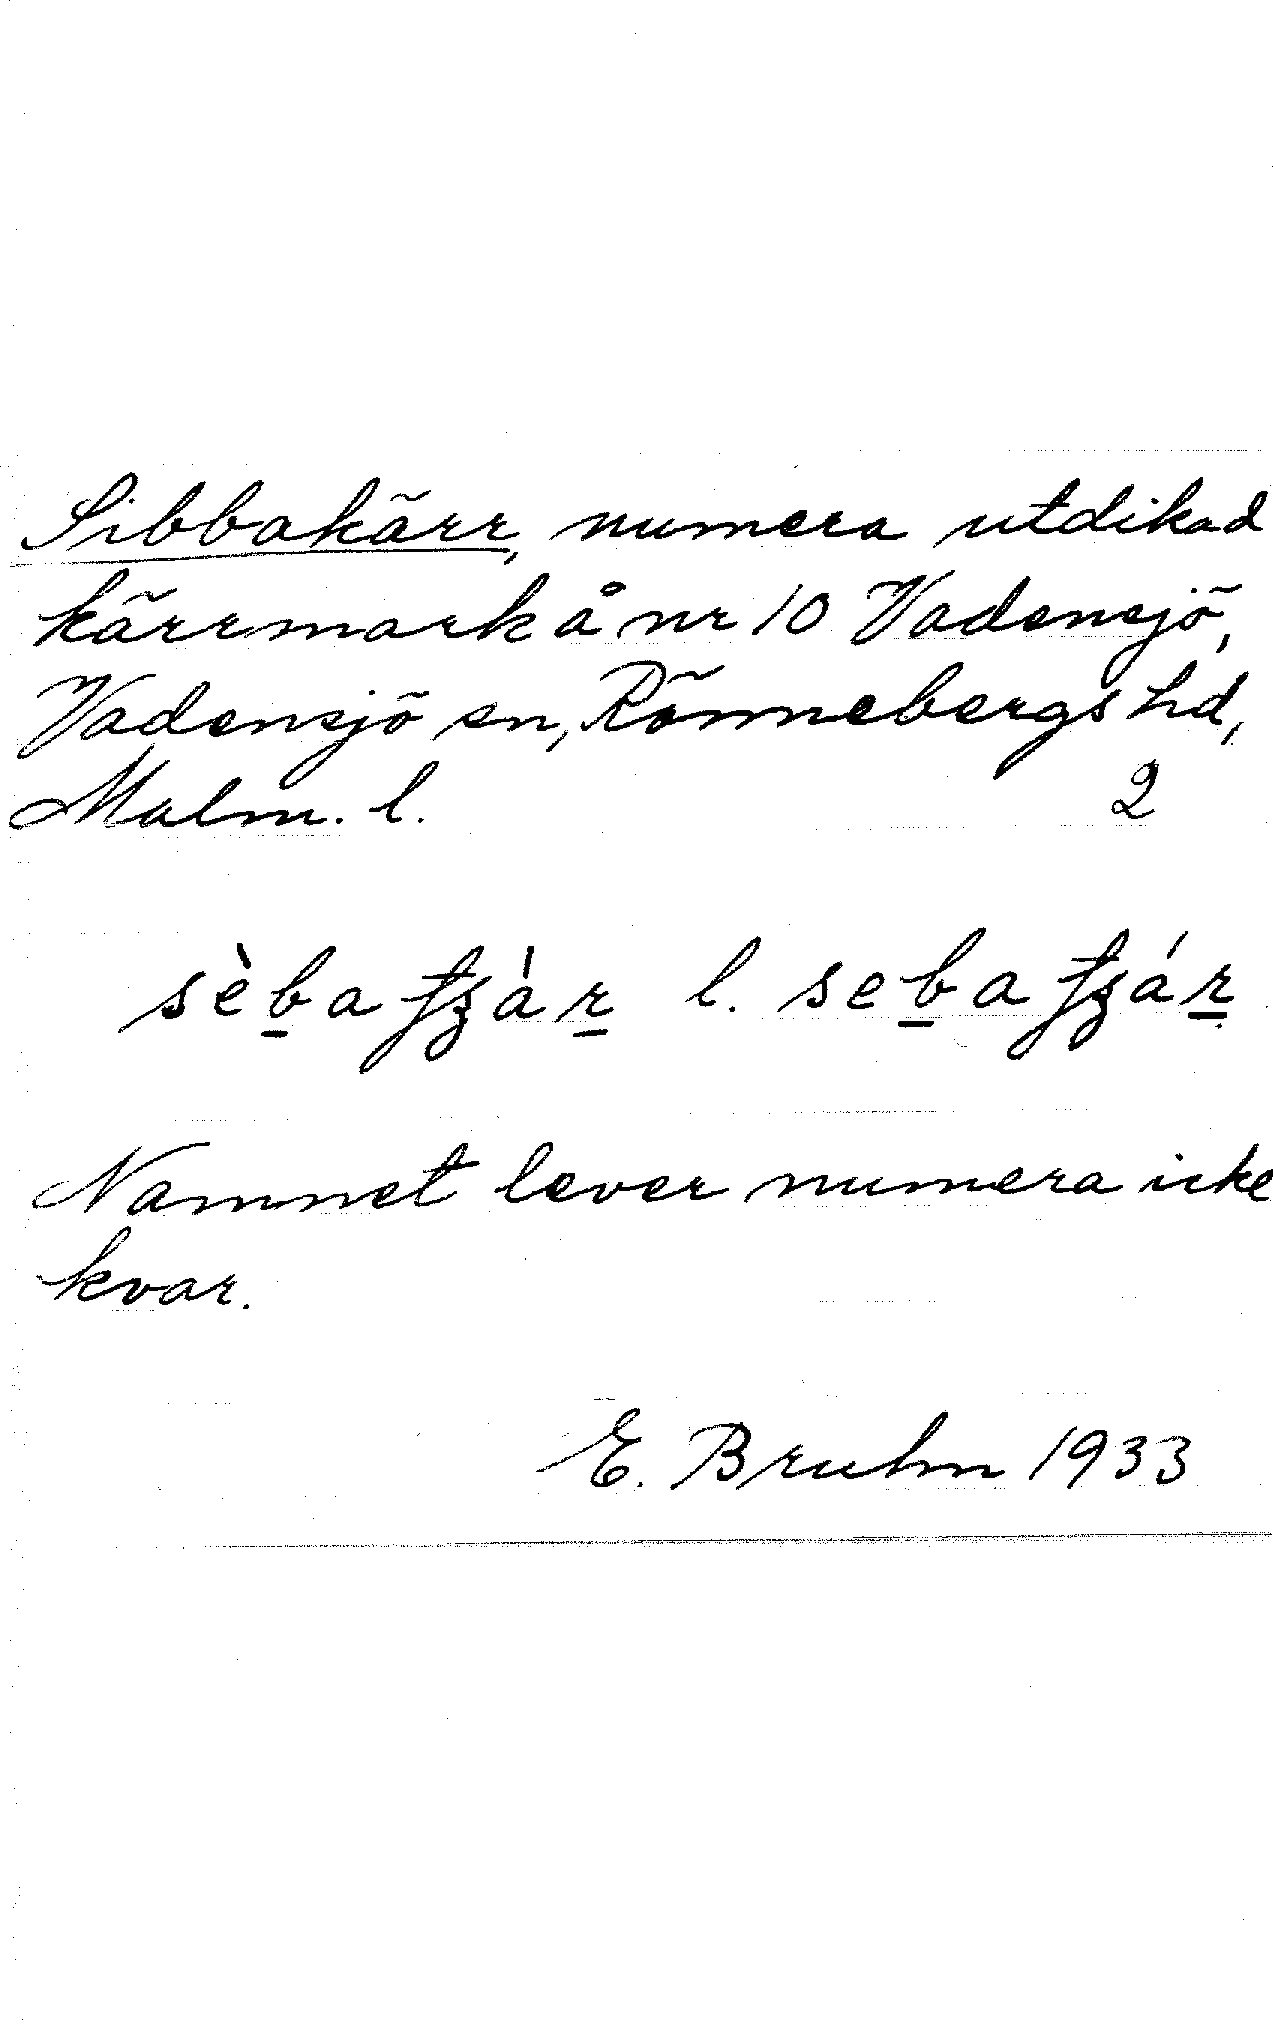 Sibbakärr, numera utdikad
kärrmark å nr 10 Vadensjö,
Vadensjö sn, Rönnebergs hd,
Malm. l. 2
sèb̲a tʒàr̲ l. seb̲a tʒár̲
Namnet lever numera icke
kvar.
E. Bruhn 1933